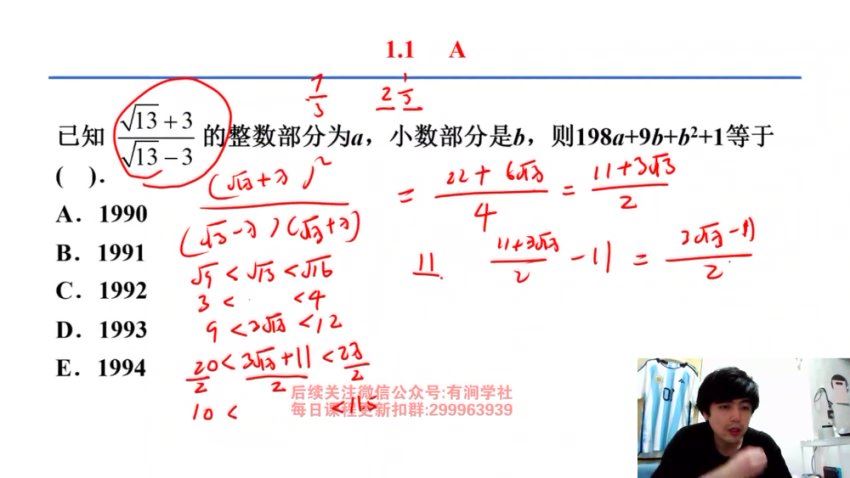 1.1 A
7/3 2 1/3
已知 (√13+3)/(√13−3) 的整数部分为a，小数部分是b，则198a+9b+b²+1等于
( ).
A．1990
B．1991
C．1992
D．1993
E．1994
(√13+3)²/(√13-3)(√13+3) = (22+6√13)/4 = (11+3√13)/2
√9 < √13 < √16
3 < <4
9 <3√13 <12
20/2 < (3√13+11)/2 < 23/2
10 < <11.5
11 (11+3√13)/2 -11 = (3√13-11)/2
后续关注微信公众号:有涧学社
每日课程更新扣群:299963939
10